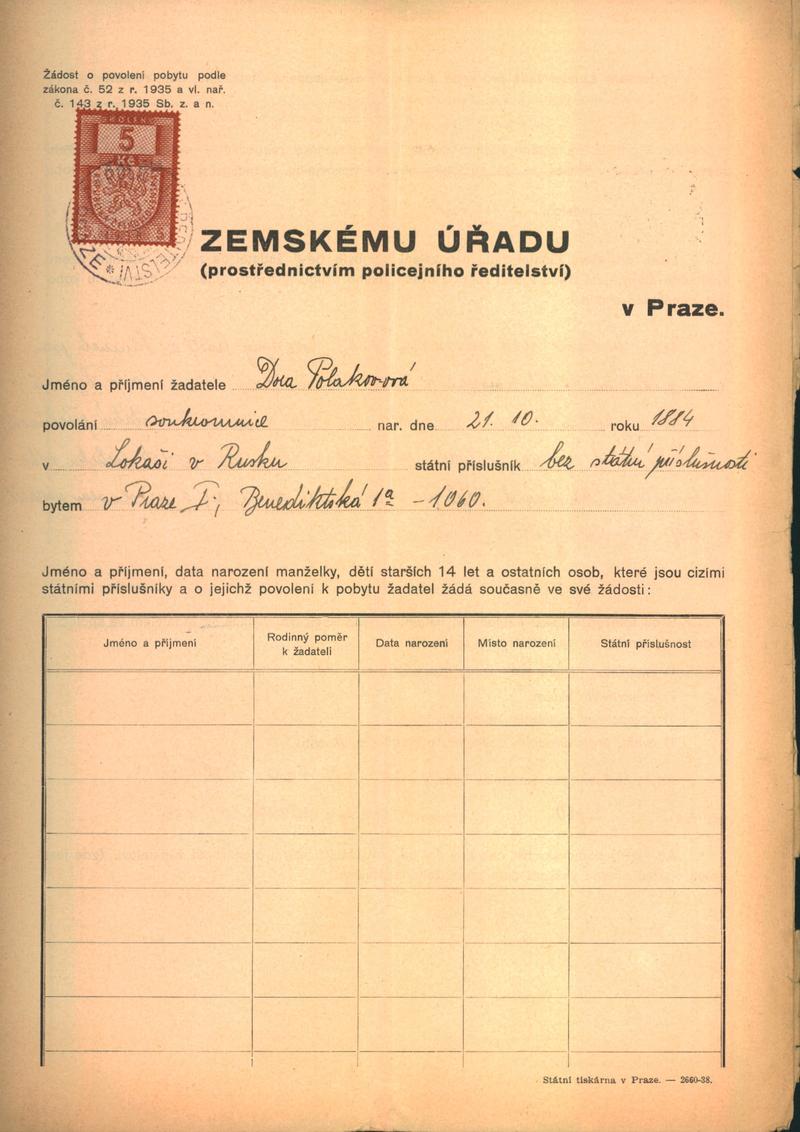 Žádost o povolení pobytu podle
zákona č. 52 z r. 1935 a vl. nař.
č. 143 z r. 1935 Sb. z. a n.
KOLEK
5
Kč
ZEMSKÉMU ÚŘADU
(prostřednictvím policejního ředitelství)
v Praze.
Jméno a příjmení žadatele Dora Polakovová
povolání soukromnice nar. dne 21. 10. roku 1884
v Lokaši v Rusku státní příslušník bez státní příslušnosti
bytem v Praze I, Benediktská 1a - 1060.
Jméno a příjmení, data narození manželky, dětí starších 14 let a ostatních osob, které jsou cizími
státními příslušníky a o jejichž povolení k pobytu žadatel žádá současně ve své žádosti:
Jméno a příjmení Rodinný poměr k žadateli Data narození Místo narození Státní příslušnost
Státní tiskárna v Praze. — 2660-38.